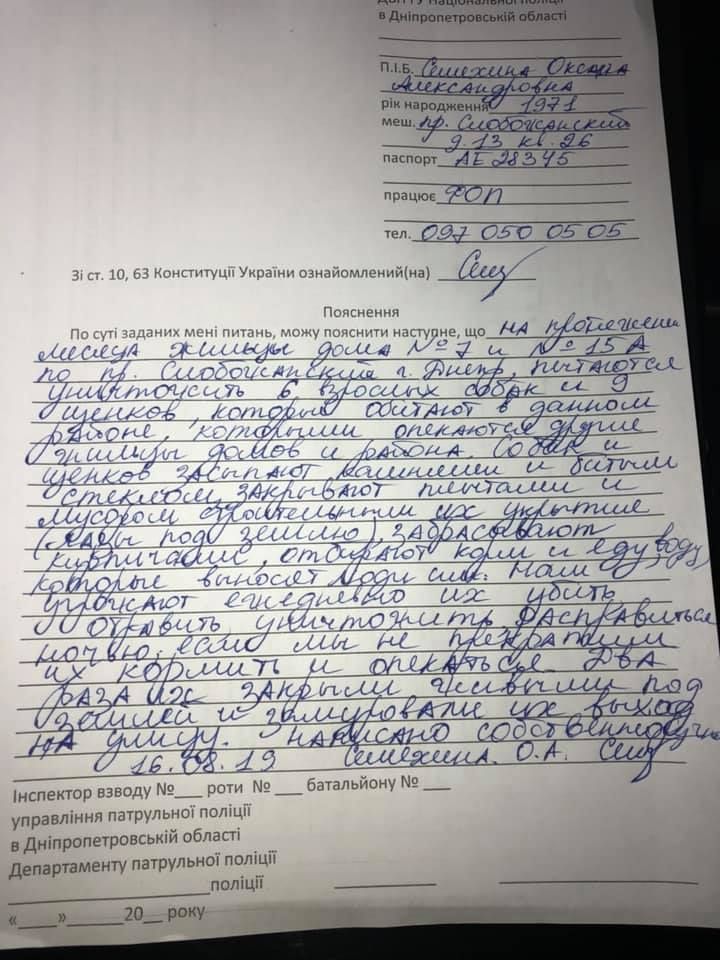 ДОП ГУ Національної поліції
в Дніпропетровській області
П.І.Б. Семехина Оксана
Александровна
рік народження 1971
меш. пр. Слобожанский
д. 13 кв. 26
паспорт АЕ 28345
працює ФОП
тел. 097 050 05 05
Зі ст. 10, 63 Конституції України ознайомлений(на)
Пояснення
По суті заданих мені питань, можу пояснити наступне, що на протяжении
месяца жильцы дома № 7 и № 15А
по пр. Слобожанский г. Днепр, пытаются
уничтожить 6 взрослых собак и 9
щенков, которые обитают в данном
районе, которыми опекаются другие
жильцы домов и района. Собак и
щенков засыпают камнями и битым
стеклом, закрывают плытами и
мусором строительным их укрытие
(лазы под землю), забрасывают
кирпичами, отбирают корм и еду, воду
которые выносят люди им. Нам
угрожают ежедневно их убить,
отравить, уничтожить, расправиться
ночью, если мы не прекратим
их кормить и опекаться. Два
раза их закрыли живыми под
землей и замуровали их выход
на улицу. Написано собственноручно
16.08.19 Семехина О.А.
Інспектор взводу №___ роти №___ батальйону №___
управління патрульної поліції
в Дніпропетровській області
Департаменту патрульної поліції
поліції
«____»______20__ року